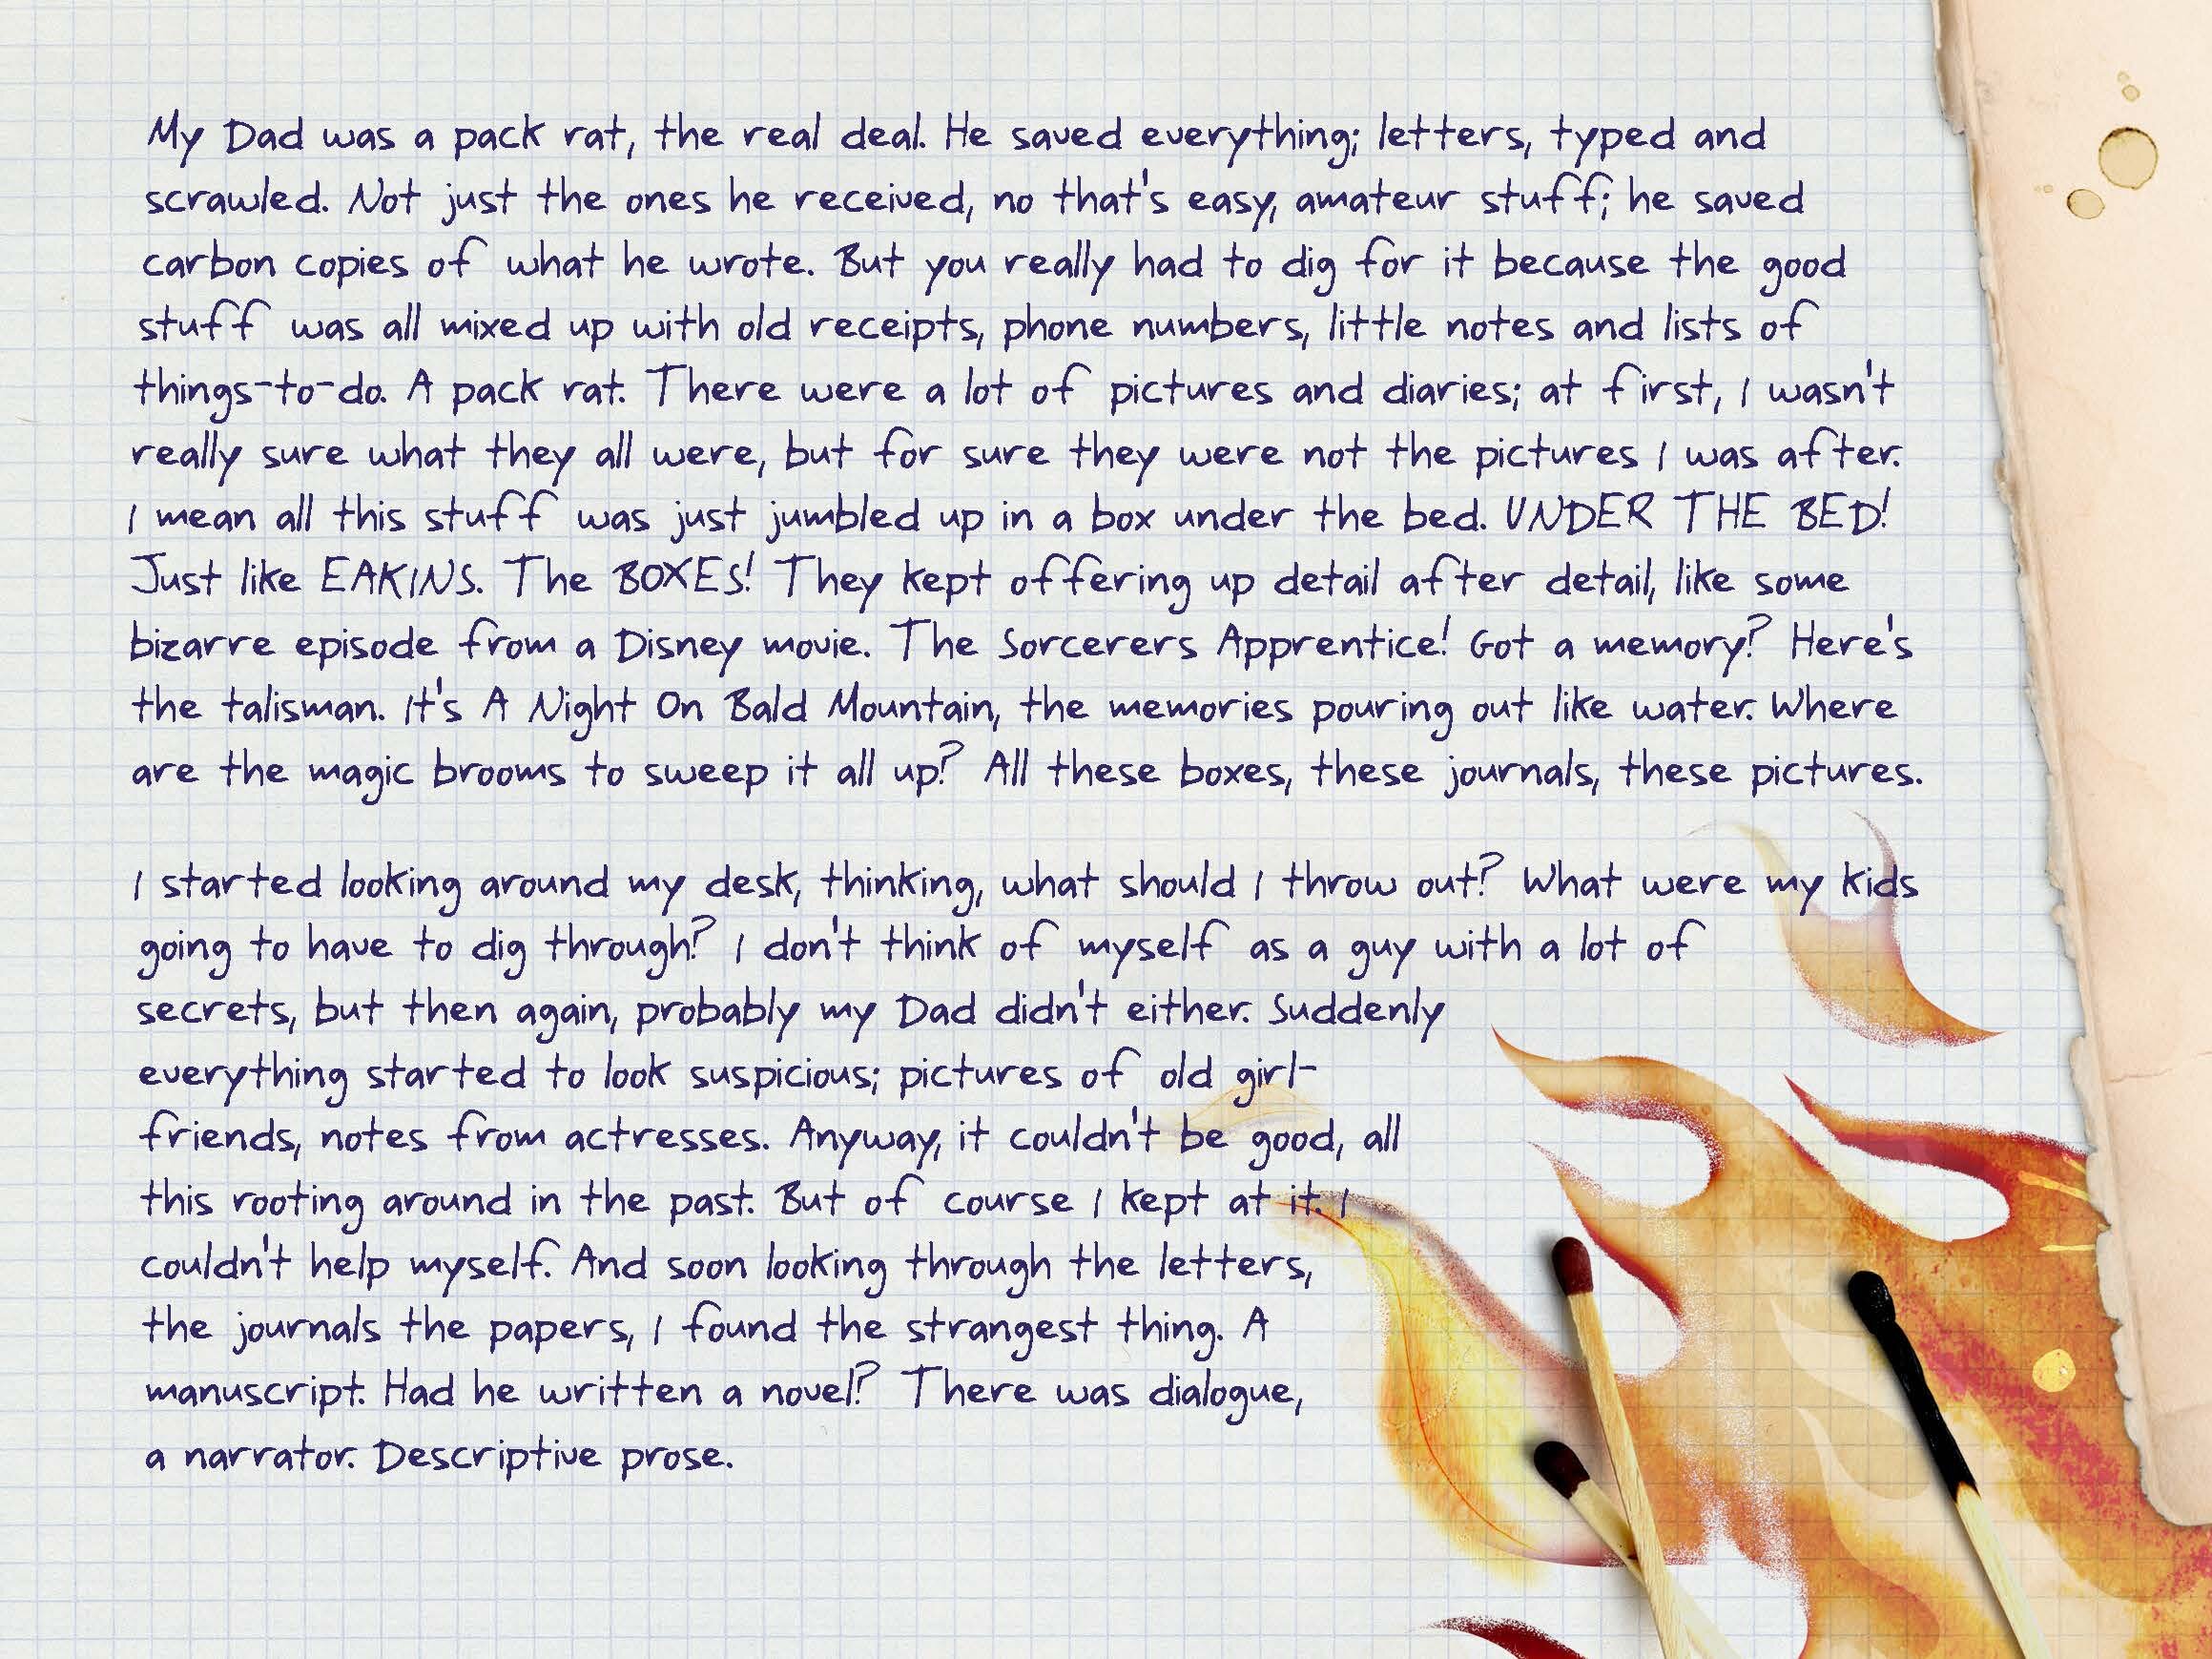 My Dad was a pack rat, the real deal. He saved everything; letters, typed and
scrawled. Not just the ones he received, no that's easy, amateur stuff; he saved
carbon copies of what he wrote. But you really had to dig for it because the good
stuff was all mixed up with old receipts, phone numbers, little notes and lists of
things-to-do. A pack rat. There were a lot of pictures and diaries; at first, I wasn't
really sure what they all were, but for sure they were not the pictures I was after.
I mean all this stuff was just jumbled up in a box under the bed. UNDER THE BED!
Just like EAKINS. The BOXES! They kept offering up detail after detail, like some
bizarre episode from a Disney movie. The Sorcerers Apprentice! Got a memory? Here's
the talisman. It's A Night On Bald Mountain, the memories pouring out like water. Where
are the magic brooms to sweep it all up? All these boxes, these journals, these pictures.
I started looking around my desk, thinking, what should I throw out? What were my kids
going to have to dig through? I don't think of myself as a guy with a lot of
secrets, but then again, probably my Dad didn't either. Suddenly
everything started to look suspicious; pictures of old girl-
friends, notes from actresses. Anyway, it couldn't be good, all
this rooting around in the past. But of course I kept at it. I
couldn't help myself. And soon looking through the letters,
the journals the papers, I found the strangest thing. A
manuscript. Had he written a novel? There was dialogue,
a narrator. Descriptive prose.